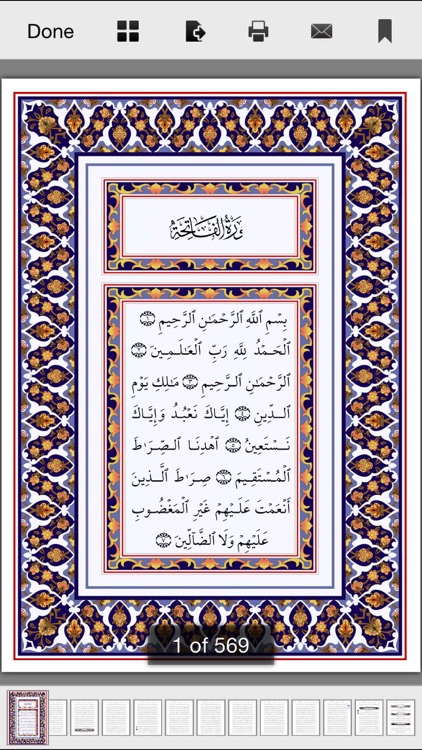 Done
سُورَةُ الْفَاتِحَةِ
بِسْمِ ٱللَّهِ ٱلرَّحْمَٰنِ ٱلرَّحِيمِ ١
ٱلْحَمْدُ لِلَّهِ رَبِّ ٱلْعَـٰلَـمِـينَ ٢
ٱلرَّحْمَٰنِ ٱلـرَّحِيـمِ ٣ مَـٰلِكِ يَوْمِ
ٱلـدِّينِ ٤ إِيَّاكَ نَعْبُـدُ وَإِيَّاكَ
نَـسْتَعِينُ ٥ ٱهْدِنَـا ٱلـصِّـرَٰطَ
ٱلْمُـسْتَـقِيـمَ ٦ صِـرَٰطَ ٱلَّـذِينَ
أَنْعَمْتَ عَلَـيْهِمْ غَيْرِ ٱلْمَغْضُـوبِ
عَلَيْهِمْ وَلَا ٱلضَّآلِّينَ ٧
1 of 569